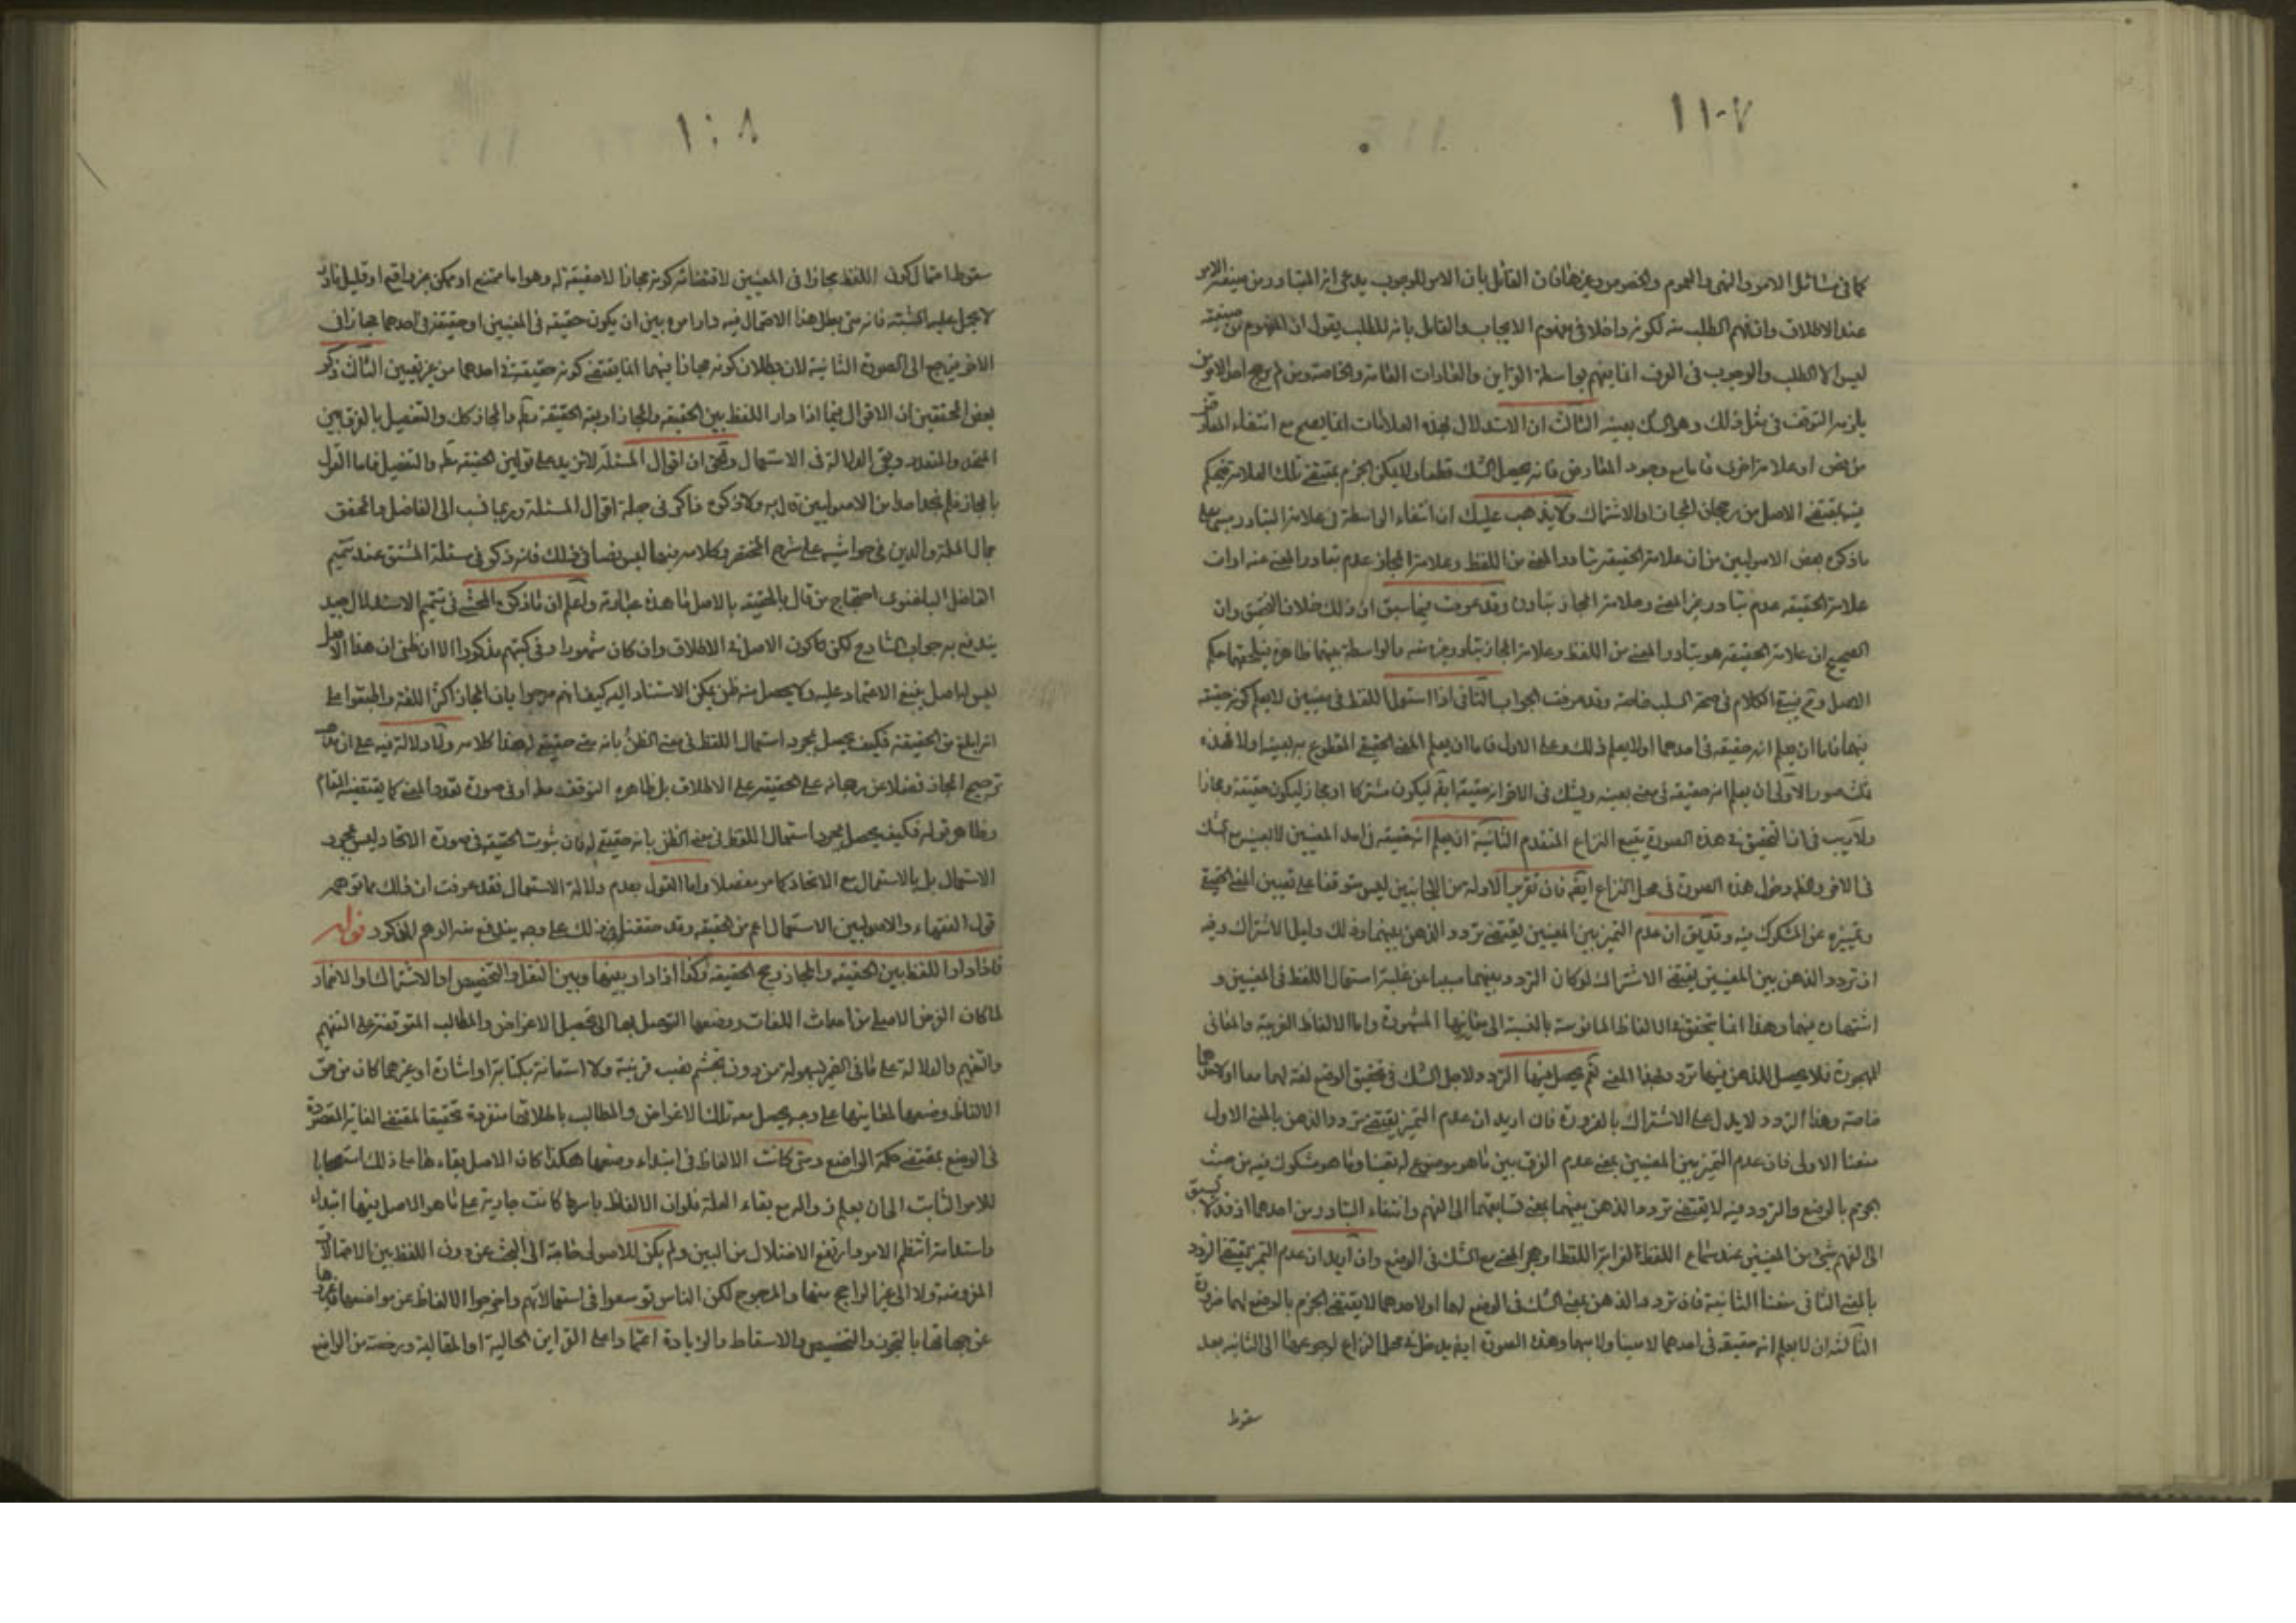 ١١٠٧
كما فى مسائل الامر والنهى والعموم والخصوص وغيرها فان القائل بان الامر للوجوب يدعى انه المتبادر من صيغة الامر
عند الاطلاق وان فهم الطلب منه لكونه داخلا فى مفهوم الايجاب والقائل بانه للطلب يقول ان المفهوم من صيغته
ليس الا الطلب والوجوب فى العرف انما يفهم بواسطة القراين والعادات العامة والخاصة ومن لم يرجح احد الامرين
يلزمه التوقف فى مثل ذلك وهو الشك بعينه الثالث ان الاستدلال بهذه العلامات انما يصح مع انتفاء المعارض
من نص او علامة اخرى فاما مع وجود المعارض فانه يحصل الشك قطعا ولا يمكن الجزم بمقتضى تلك العلامة فيحكم
فيه بمقتضى الاصل من رجحان المجاز او الاشتراك ولا يذهب عليك ان انتفاء الواسطة فى علامة التبادر مبنى على
ماذكره بعض الاصوليين من ان علامة الحقيقة تبادر المعنى من اللفظ وعلامة المجاز عدم تبادر المعنى منه او ان
علامة الحقيقة عدم تبادر غير المعنى وعلامة المجاز تبادره وقد عرفت فيما سبق ان ذلك خلاف التحقيق وان
الصحيح ان علامة الحقيقة هو تبادر المعنى من اللفظ وعلامة المجاز تبادر غيره منه فالواسطة بينهما ظاهرة فيلحقهما حكم
الاصل وتم فيتبع الكلام فى صحة السلب خاصة وقد عرفت الجواب الثانى اذا استعمل اللفظ فى معنيين لا يعلم كونه حقيقة
فيهما فاما ان يعلم انه حقيقة فى احدهما اولا يعلم ذلك وعلى الاول فاما ان يعلم المعنى الحقيقى المقطوع به بعينه اولا فهذه
ثلث صور الاولى ان يعلم انه حقيقة فى معنى بعينه ويشك فى الاخر انه حقيقة ايضا ليكون مشتركا او مجاز ليكون حقيقة ومجازا
ولا ريب فى ان التحقيق فى هذه الصورة يتبع النزاع المتقدم الثانية ان يعلم انه حقيقة فى احد المعنيين لا بعينه مع الشك
فى الاخر وظه دخول هذه الصورة فى محل النزاع ايضا فان تقرير الادلة من الجانبين ليس متوقفا على تعيين المعنى الحقيقى
وتمييزه عن المشكوك فيه وقد يق ان عدم التميز بين المعنيين يقتضى تردد الذهن بينهما وذلك دليل الاشتراك وفيه
ان تردد الذهن بين المعنيين يقتضى الاشتراك لو كان التردد بينهما سببا عن غلبة استعمال اللفظ فى المعنيين و
اشتهاره فيهما وهذا انما يتحقق فى الالفاظ المانوسة بالنسبة الى معانيها المشهورة واما الالفاظ الغريبة والمعانى
المهجورة فلا يحصل للذهن فيها تردد بهذا المعنى نعم يحصل فيها التردد لاجل الشك فى تحقيق الوضع لغة لهما معا او لاحدهما
خاصة وهذا التردد لا يدل على الاشتراك بالضرورة فان اريد ان عدم التميز يقتضى تردد الذهن بالمعنى الاول
منعنا الاولى فان عدم التميز بين المعنيين بمعنى عدم الفرق بين ماهو موضوع له يقينا وماهو مشكوك فيه من حيث
الجزم بالوضع والتردد فيه لا يقتضى تردد الذهن بينهما بمعنى تسابقهما الى الفهم وانتفاء التبادر من احدهما اذ قد لا يسبق
الى الفهم شئ من المعنيين عند سماع اللفظ لغرابة اللفظ او هجر المعنى مع الشك فى الوضع وان اريد ان عدم التميز يقتضى التردد
بالمعنى الثانى منعنا الثانية فان تردد الذهن بمعنى الشك فى الوضع لهما او لاحدهما لا يقتضى الجزم بالوضع لهما ضرورة
الثالثة ان لا يعلم انه حقيقة فى احدهما لا معينا ولا مبهما وهذه الصورة ايضا يدخل فى محل النزاع لرجوعها الى الثانية بعد
سقوط
١١٠٨
سقوط احتمال كون اللفظ مجازا فى المعنيين لاقتضائه كونه مجازا لا حقيقة له وهو اما ممتنع او ممكن غير واقع او قليل نادر
لا يحمل عليه المشتبه فانه متى بطل هذا الاحتمال فيه دار امره بين ان يكون حقيقة فى المعنيين او حقيقة فى احدهما مجاز فى
الاخر فيرجع الى الصورة الثانية لان بطلان كونه مجازا فيهما انما يقتضى كونه حقيقة فى احدهما من غير تعيين الثالث ذكر
بعض المحققين ان الاقوال فيما اذا دار اللفظ بين الحقيقة والمجاز اربعة الحقيقة مطم والمجاز كك والتفصيل بالفرق بين
المتحد والمتعدد ونفى الدلالة فى الاستعمال والحق ان اقوال المسئلة لا تزيد على قولين الحقيقة مطم والتفصيل فاما القول
بالمجاز فلم نجد احدا من الاصوليين قال به ولا ذكره ذاكر فى جملة اقوال المسئلة وربما نسب الى الفاضل والمحقق
جمال الملة والدين فى حواشيه على شرح المختصر وكلامه فيها ليس نصا فى ذلك فانه ذكر فى مسئلة المشتق عند تتميم
الفاضل الباغنوى احتجاج من قال بالحقيقة بالاصل ما هذه عبارته واعلم ان ماذكره المحشى فى تتميم الاستدلال جيد
يندفع به جواب الشارح لكن كون الاصل فى الاطلاق وان كان مشهورا وفى كتبهم مذكورا الا ان ظنى ان هذا الاصل
ليس له اصل ينبغى الاعتماد عليه ولا يحصل منه ظن يمكن الاستناد اليه كيف انهم صرحوا بان المجاز اكثر اللغة واطبقوا على
انه ابلغ من الحقيقة فكيف يحصل بمجرد استعمال اللفظ فى معنى الظن بانه معنى حقيقى له هذا كلامه ولا دلالة فيه على ان
ترجيح المجاز فضلا عن رجحانه على الحقيقة على الاطلاق بل ظاهره التوقف مطم او فى صورة تعدد المعنى كما يقتضيه المقام
وظاهر قوله فكيف يحصل بمجرد استعمال اللفظ فى معنى الظن بانه حقيقى له فان ثبوت الحقيقة فى صورة الاتحاد ليس بمجرد
الاستعمال بل بالاستعمال مع الاتحاد كما مر مفصلا واما القول بعدم دلالة الاستعمال فقد عرفت ان ذلك مما توهمه
قول الفقهاء والاصوليين الاستعمال اعم من الحقيقة وقد حققنا ذلك على وجه يندفع منه الوهم المذكور فوائد
فاذا دار اللفظ بين الحقيقة والمجاز رجح الحقيقة وكذا اذا دار بينها وبين النقل والتخصيص او الاشتراك او الاضمار
لما كان الغرض الاصلى من احداث اللغات ووضعها التوصل بها الى تحصيل الاعراض والمطالب المتوقفة على التفهم
والتفهيم والدلالة على مافى الضمير بسهولة من دون تجشم نصب قرينة ولا استعانة بكتابة او اشارة او غيرهما كان من حق
الالفاظ وضعها لمعانيها على وجه يحصل معه تلك الاغراض والمطالب باطلاقها منفردة تحقيقا لمقتضى الغاية المقصودة
فى الوضع بمقتضى حكمة الواضع ومتى كانت الالفاظ فى ابتداء وضعها هكذا كان الاصل بقاءها على ذلك استصحابا
للامر الثابت الى ان يعلم زواله مع بقاء العلة فلو ان الالفاظ باسرها كانت جارية على ماهو الاصل فيها ابتداء
واستدامة انتظم الامر وارتفع الاختلال من البين ولم يكن للاصولى حاجة الى البحث عن دوران اللفظ بين الاحتمالات
المفروضة ولا الى عن الراجح منها والمرجوح لكن الناس توسعوا فى استعمالاتهم واخرجوا الالفاظ عن مواضعها
عن جهاتها بالتجوز والتخصيص والاسقاط والزيادة اعتمادا على القراين الحالية او المقالية ورخصة من الواضع